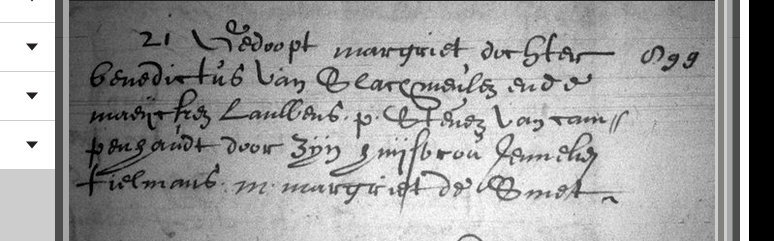 21 Gedoopt margriet dochter 899
benedictus van Slaechmeulen ende
maeijcken Lauwens. p. Steven van cam//
penhaudt door zijn huijsvrou Jenneken
tielmans. m. margriet de Smet